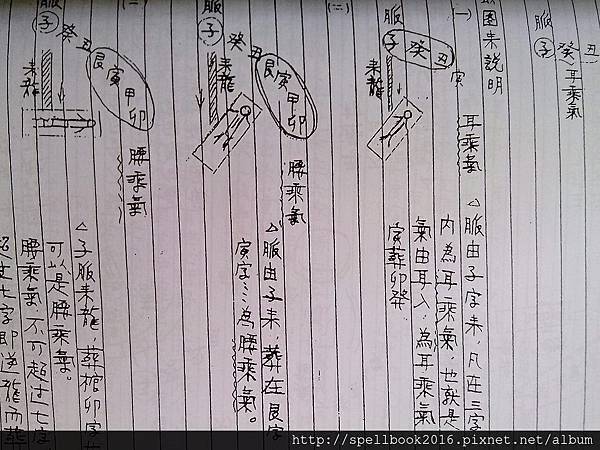 丑
癸 耳乘氣
脈 子
以圖來說明
(一)
脈 子 癸 丑 寅
來龍
耳乘氣
△脈由子字來，凡在三字
內為耳乘氣，也就是
氣由耳入，為耳乘氣
寅葬卯癸
(二)
脈 子 癸 丑 艮 寅 甲 卯
來龍
腰乘氣
△脈由子來 葬在艮字
寅字⋯為腰乘氣。
脈 子 癸 丑 艮 寅 甲 卯
來龍
腰乘氣
△子脈來龍，葬棺卯字
可以是腰乘氣。
腰乘氣不可超过七字
超过七字即逆龍而葬
http://spellbook2016.pixnet.net/album